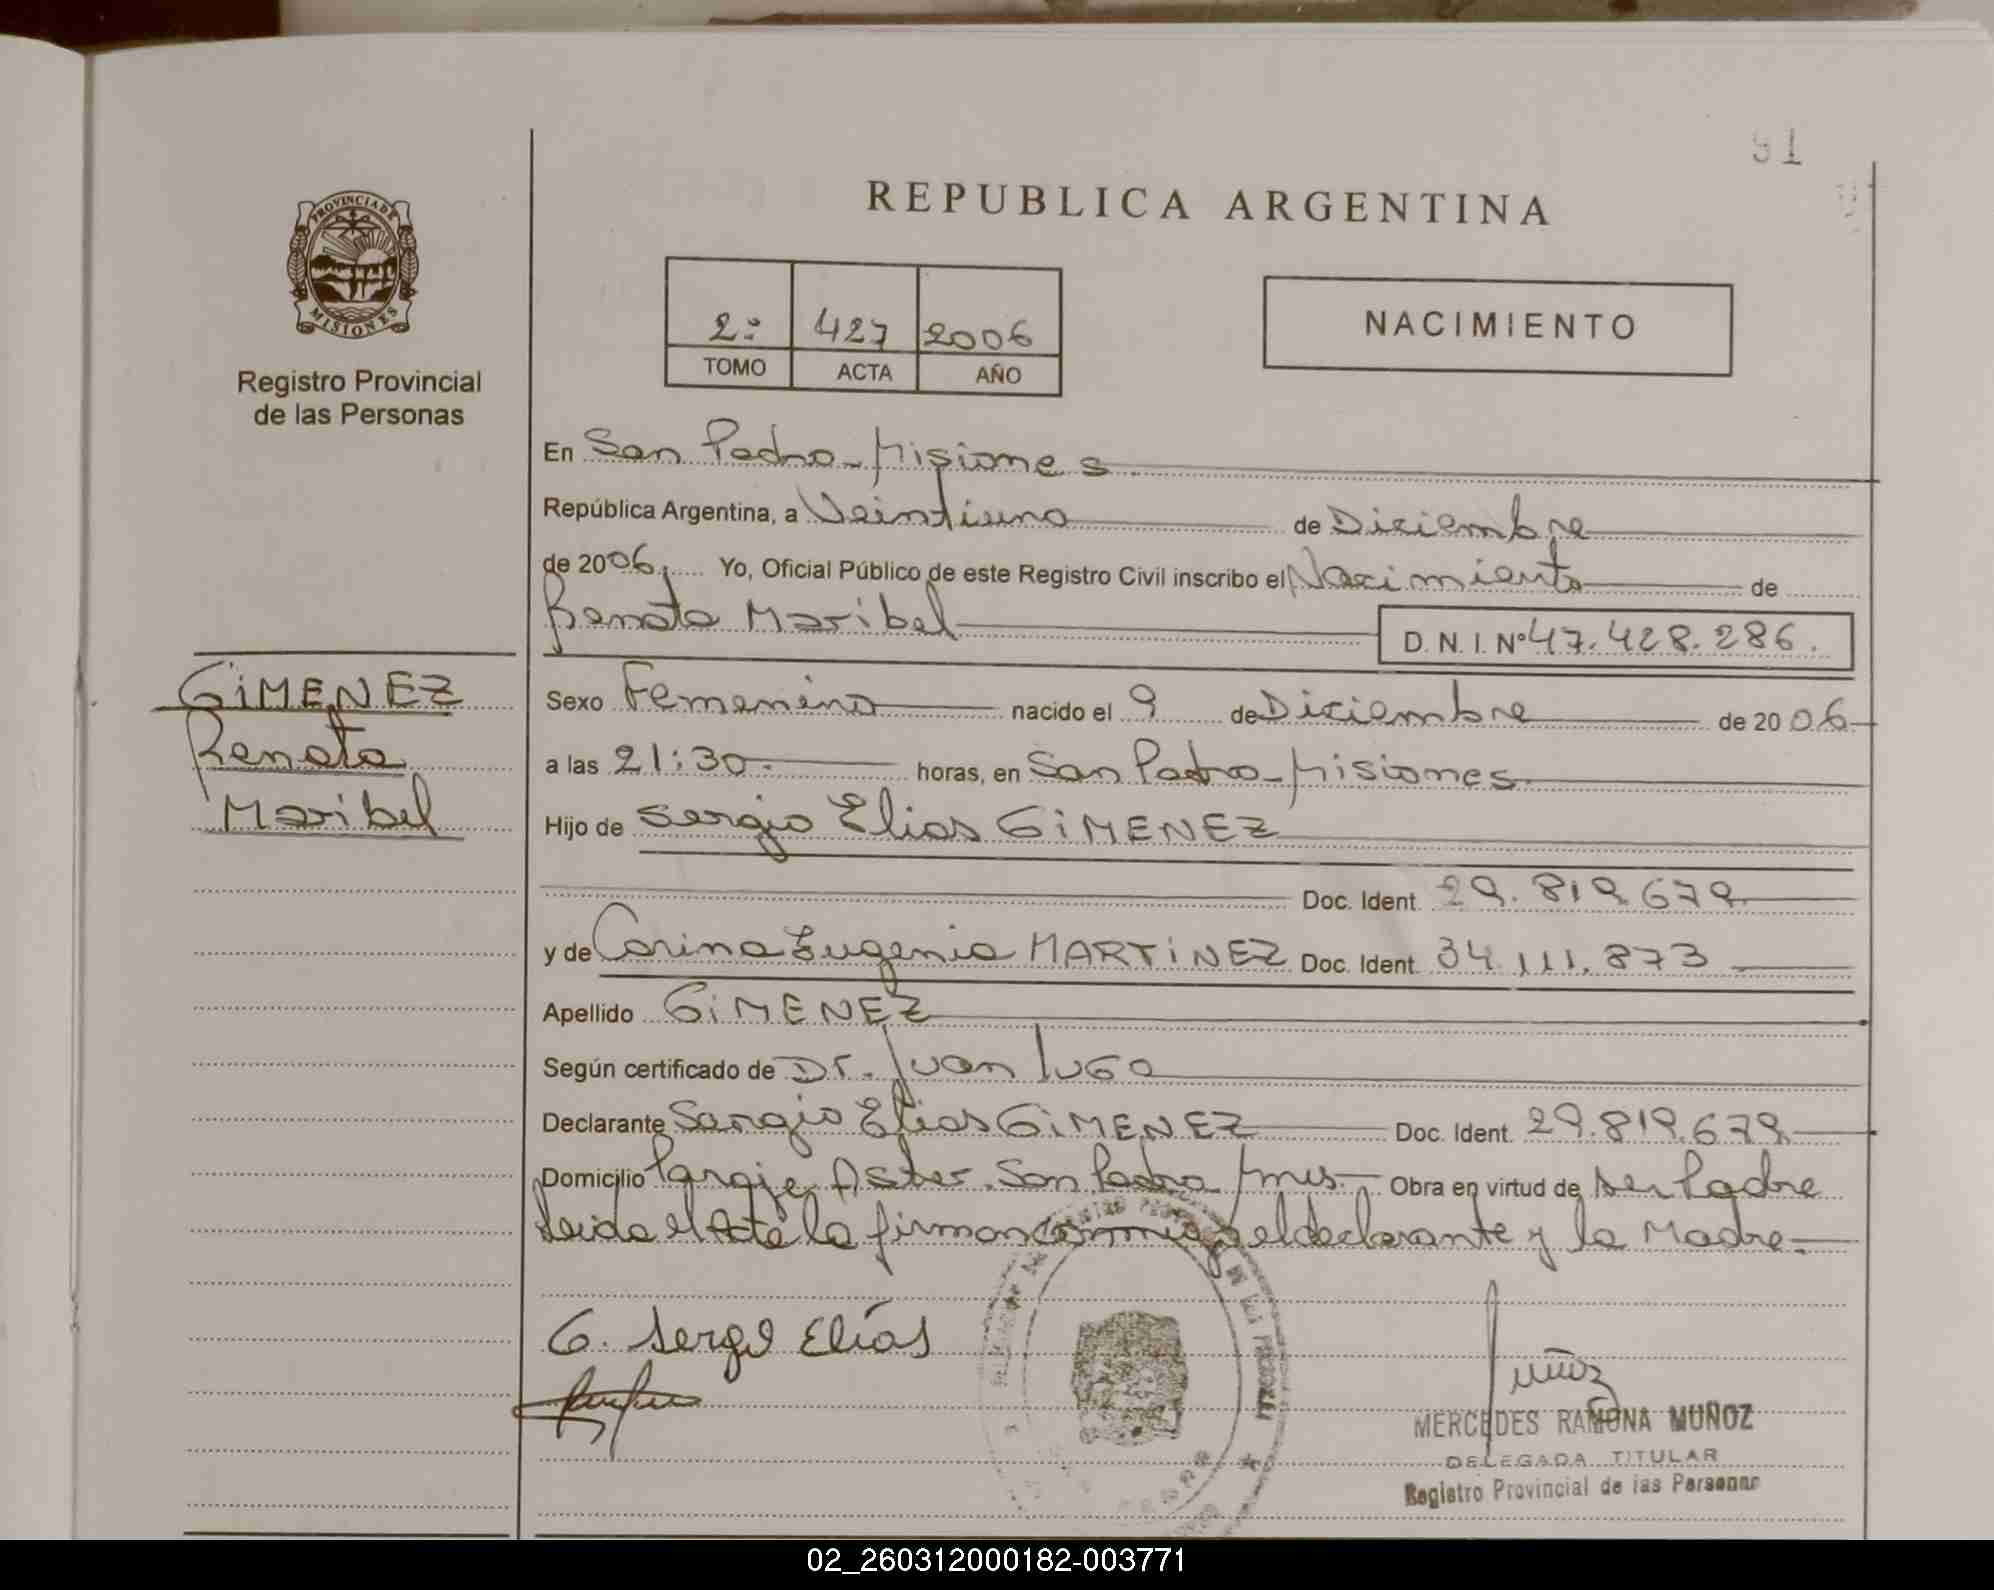 91
REPUBLICA ARGENTINA
PROVINCIA DE
MISIONES
Registro Provincial
de las Personas
2º 427 2006
TOMO ACTA AÑO
NACIMIENTO
En San Pedro - Misiones
República Argentina, a Veintiuno de Diciembre
de 2006. Yo, Oficial Público de este Registro Civil inscribo el Nacimiento de
Renata Maribel D. N. I. Nº 47.428.286.
GiMENEZ
Renata
Maribel
Sexo Femenino nacido el 9 de Diciembre de 2006
a las 21:30. horas, en San Pedro - Misiones
Hijo de Sergio Elias GiMENEZ
Doc. Ident. 29.819.679
y de Carina Eugenia MARTiNEZ Doc. Ident. 34.111.873
Apellido GiMENEZ
Según certificado de Dr. Juan Lugo
Declarante Sergio Elias GiMENEZ Doc. Ident. 29.819.679
Domicilio Paraje Aster. San Pedro Mnes. Obra en virtud de ser Padre
Leida el Acta la firman conmigo el declarante y la Madre.
G. Sergio Elías
Muñoz
MERCEDES RAMONA MUÑOZ
DELEGADA TITULAR
Registro Provincial de las Personas
02_260312000182-003771